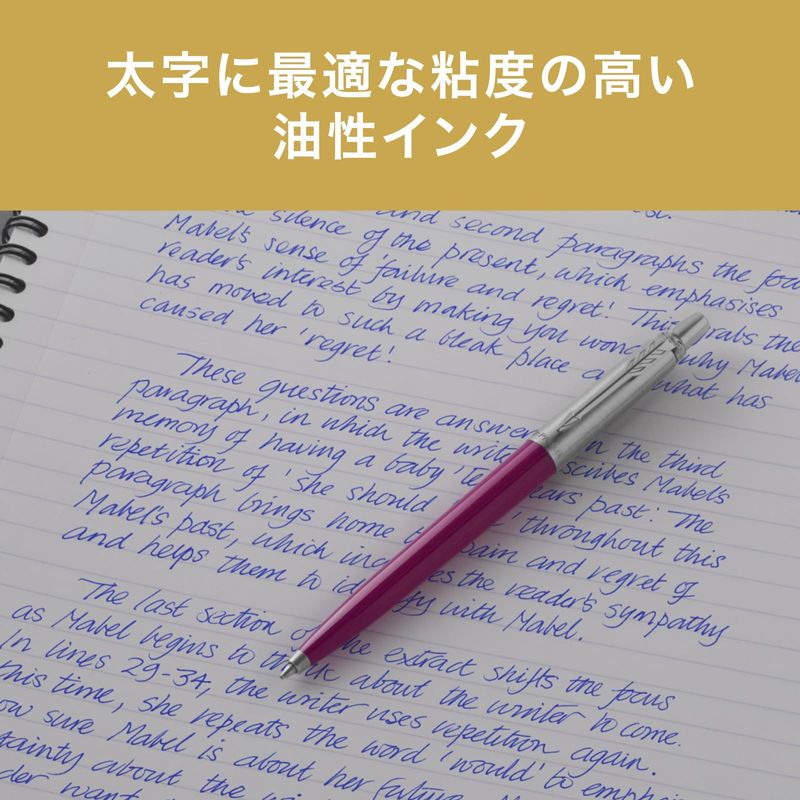 太字に最適な粘度の高い
油性インク
silence of the second paragraphs the focu
Mabel's sense of the present, which emphasises
reader's interest by failure and regret! This grabs the
has moved to such a bleak place a what has
caused her 'regret!
These questions are answer in the third
paragraph, in which the write scribes Mabel's
memory of having a baby 'te ears past! The
repetition of 'she should throughout this
paragraph brings home t pain and regret of
Mabel's past, which inc es the reader's sympathy
and helps them to id fy with Mabel.
The last section o the extract shifts the focus
as Mabel begins to think about the writer to come.
In lines 29-34, the writer uses repetition again.
this time, she repeats the word 'would' to emphasi
ow sure Mabel is about her future. M
tainty about the
der want